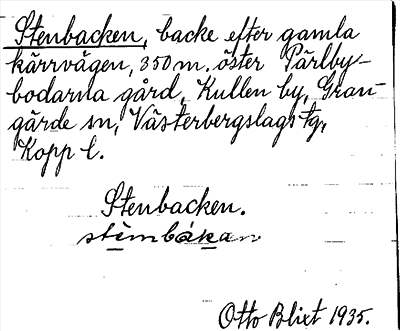 Stenbacken, backe efter gamla
kärrvägen, 350 m. öster Pärlby-
bodarna gård, Kullen by, Gran-
gärde sn, Västerbergslags tg,
Kopp l.
Stenbacken.
stèmbákan
Otto Blixt 1935.